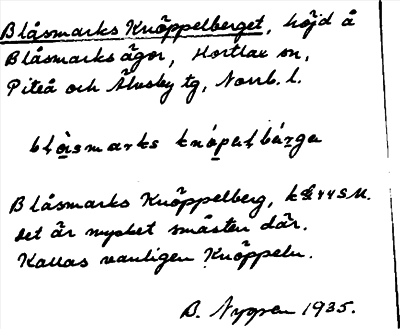 Blåsmarks Knöppelberget, höjd å
Blåsmarks ägor, Hortlax sn,
Piteå och Älvsby tg, Norrb. l.
blåsmarks knöpelbärge
Blåsmarks Knöppelberg,
det är mycket småsten där.
Kallas vanligen Knöppeln.
B. Nygren 1935.